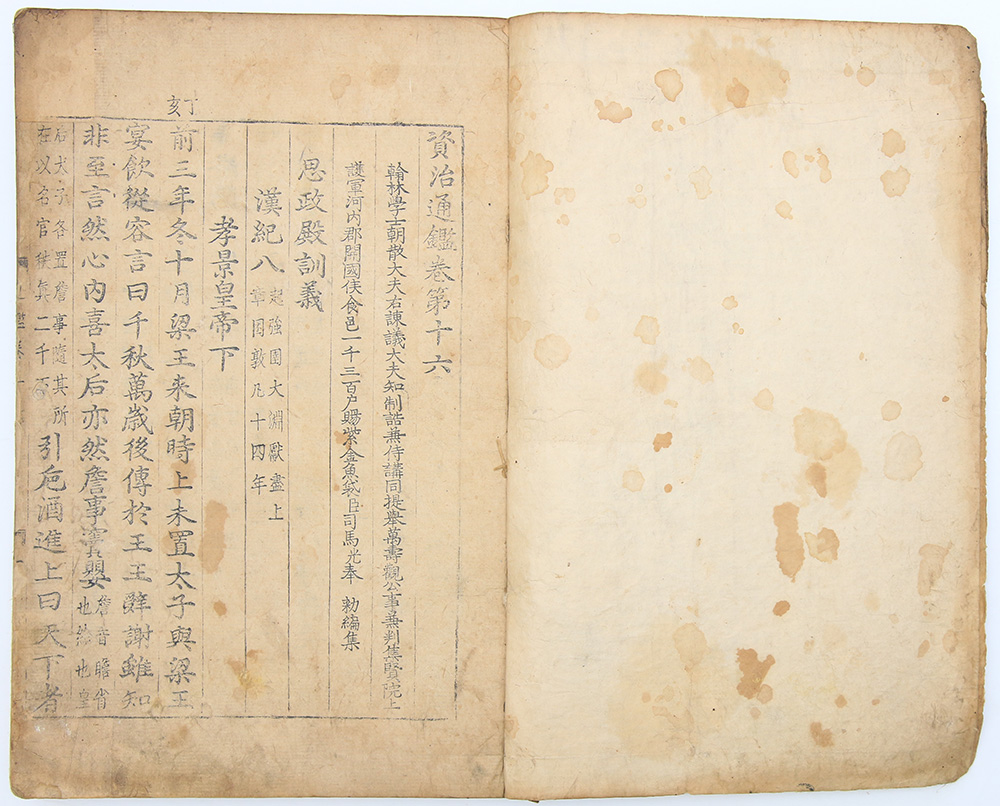 資治通鑑卷第十六
翰林學士朝散大夫右諫議大夫知制誥兼侍講同提擧萬壽觀公事兼判集賢院上
護軍河內郡開國侯食邑一千三百戶賜紫金魚袋臣司馬光奉 勑編集
思政殿訓義
漢紀八 起強圉大淵獻盡上
章困敦凡十四年
孝景皇帝下
丁亥
前三年冬十月梁王来朝時上未置太子與梁王
宴飮從容言曰千秋萬歲後傳於王王辭謝雖知
非至言然心內喜太后亦然詹事竇嬰 詹音瞻省
也給也皇
后太子各置詹事隨其所
在以名官秩眞二千石 引巵酒進上曰天下者